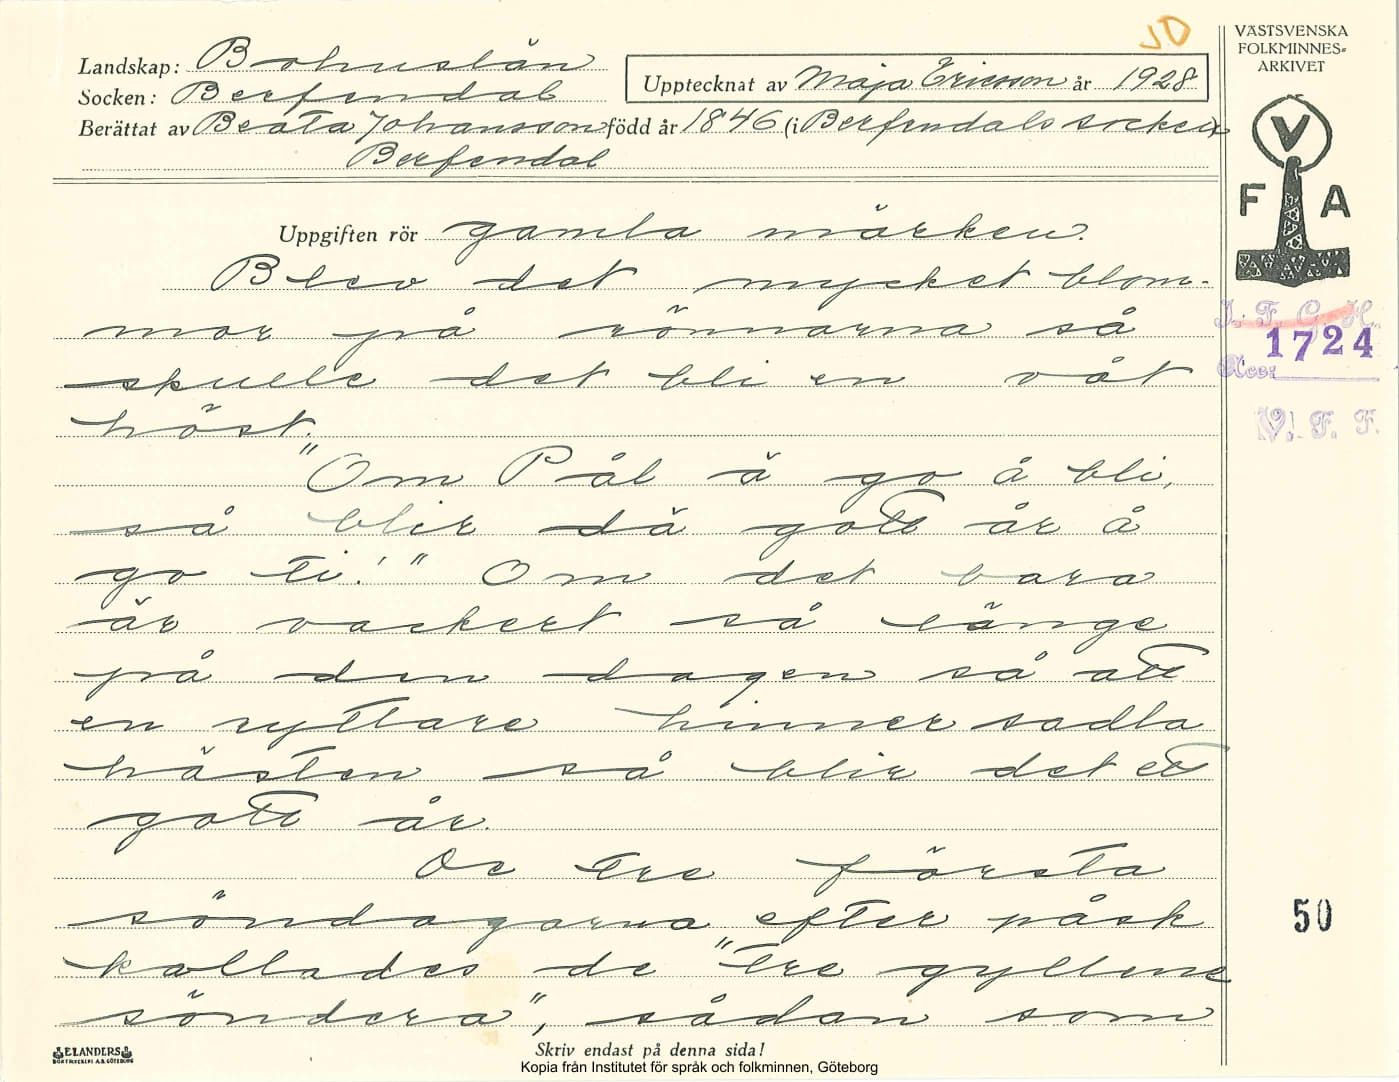 JD
VÄSTSVENSKA
FOLKMINNES-
ARKIVET
Landskap: Bohuslän
Upptecknat av Maja Ericson år 1928
Socken: Berfendal
Berättat av Beata Johansson född år 1846 (i Berfendals socken)
Berfendal
V
F A
Uppgiften rör gamla märken.
Blev det mycket blom-
mor på rönnarna så
skulle det bli en våt
höst.
"Om Pål ä go å bli,
så blir dä gott år å
go ti!" Om det bara
är vackert så länge
på den dagen så att
en ryttare hinner sadla
hästen så blir det ett
gott år.
De tre första
söndagarna efter påsk
kallades de "tre gyllene
söndera", sådan som
I. F. G. H.
1724
Acc:
V. F. F.
50
ELANDERS
BOKTRYCKERI A.B. GÖTEBORG
Skriv endast på denna sida!
Kopia från Institutet för språk och folkminnen, Göteborg